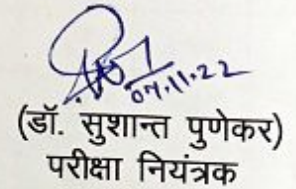 07.11.22
(डॉ. सुशान्त पुणेकर)
परीक्षा नियंत्रक